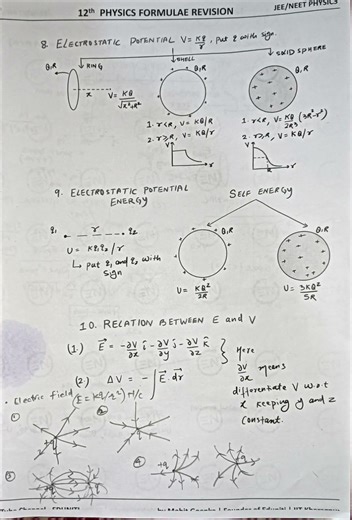 12th PHYSICS FORMULAE REVISION
JEE/NEET PHYSICS
8. ELECTROSTATIC POTENTIAL V = Kq/r, Put q with sign.
RING
SHELL
SOLID SPHERE
Q,R
Q,R
Q,R
x
V = KQ/√(x²+R²)
1. r<R, V = KQ/R
2. r≥R, V = KQ/r
1. r<R, V = KQ/2R³ (3R²-r²)
2. r≥R, V = KQ/r
V
r
V
r
R
9. ELECTROSTATIC POTENTIAL ENERGY
SELF ENERGY
q₁ r q₂
U = Kq₁q₂/r
↳ Put q₁ and q₂ with sign
Q,R
Q,R
U = KQ²/2R
U = 3KQ²/5R
10. RELATION BETWEEN E and V
(1.) E⃗ = -∂V/∂x î - ∂V/∂y ĵ - ∂V/∂z k̂
(2.) ΔV = -∫E⃗.dr⃗
Here ∂V/∂x means
differentiate V w.r.t
x keeping y and z
constant.
• Electric field (E = Kq/r²) N/C
①
②
③
④
+q
-q
+q